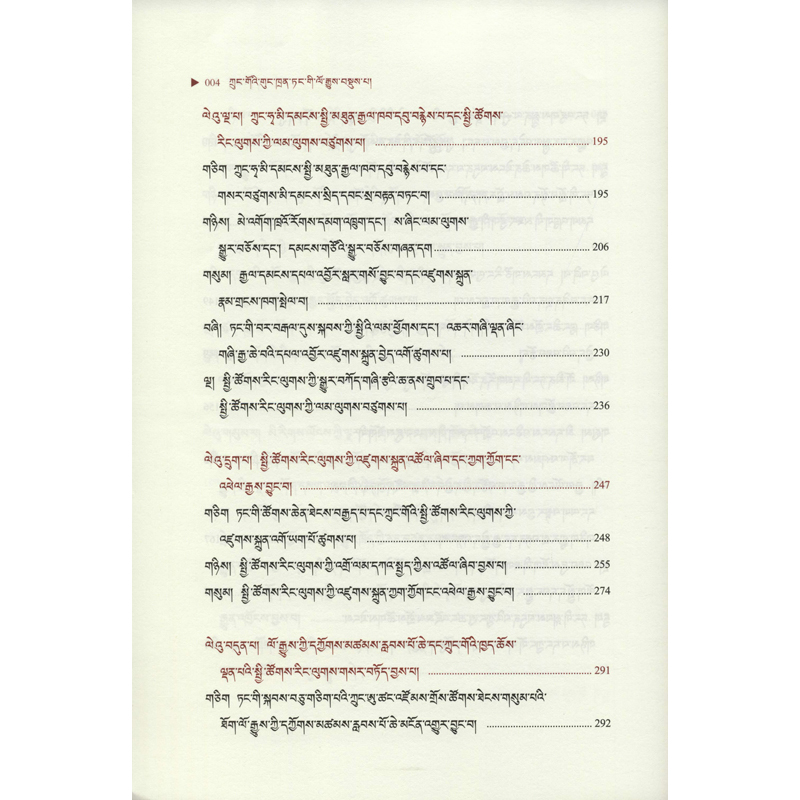 ▶ 004 ཀྲུང་གོའི་གུང་ཁྲན་ཏང་གི་ལོ་རྒྱུས་བསྡུས་པ།
ལེའུ་ལྔ་པ། ཀྲུང་ཧྭ་མི་དམངས་སྤྱི་མཐུན་རྒྱལ་ཁབ་དབུ་བརྙེས་པ་དང་སྤྱི་ཚོགས་
རིང་ལུགས་ཀྱི་ལམ་ལུགས་བཙུགས་པ། 195
གཅིག ཀྲུང་ཧྭ་མི་དམངས་སྤྱི་མཐུན་རྒྱལ་ཁབ་དབུ་བརྙེས་པ་དང་
གསར་བཙུགས་མི་དམངས་སྲིད་དབང་སྲ་བརྟན་བཏང་བ། 195
གཉིས། མེ་འགོག་ཁྲའོ་རོགས་དམག་འཁྲུག་དང་། ས་ཞིང་ལམ་ལུགས་
སྒྱུར་བཅོས་དང་། དམངས་གཙོའི་སྒྱུར་བཅོས་གཞན་དག 206
གསུམ། རྒྱལ་དམངས་དཔལ་འབྱོར་སླར་གསོ་བྱུང་བ་དང་འཛུགས་སྐྲུན་
རྣམ་གྲངས་ཁག་སྤེལ་བ། 217
བཞི། ཏང་གི་བར་བརྒལ་དུས་སྐབས་ཀྱི་སྤྱིའི་ལམ་ཕྱོགས་དང་། འཆར་གཞི་ལྡན་ཞིང་
གཞི་རྒྱ་ཆེ་བའི་དཔལ་འབྱོར་འཛུགས་སྐྲུན་བྱེད་འགོ་ཚུགས་པ། 230
ལྔ། སྤྱི་ཚོགས་རིང་ལུགས་ཀྱི་སྒྱུར་བཀོད་གཞི་རྩའི་ཆ་ནས་གྲུབ་པ་དང་
སྤྱི་ཚོགས་རིང་ལུགས་ཀྱི་ལམ་ལུགས་བཙུགས་པ། 236
ལེའུ་དྲུག་པ། སྤྱི་ཚོགས་རིང་ལུགས་ཀྱི་འཛུགས་སྐྲུན་འཚོལ་ཞིབ་དང་ཀྱག་ཀྱོག་ངང་
འཕེལ་རྒྱས་བྱུང་བ། 247
གཅིག ཏང་གི་ཚོགས་ཆེན་ཐེངས་བརྒྱད་པ་དང་ཀྲུང་གོའི་སྤྱི་ཚོགས་རིང་ལུགས་ཀྱི་
འཛུགས་སྐྲུན་འགོ་ཡག་པོ་ཚུགས་པ། 248
གཉིས། སྤྱི་ཚོགས་རིང་ལུགས་ཀྱི་འགྲོ་ལམ་དཀའ་སྤྱད་ཀྱིས་འཚོལ་ཞིབ་བྱས་པ། 255
གསུམ། སྤྱི་ཚོགས་རིང་ལུགས་ཀྱི་འཛུགས་སྐྲུན་ཀྱག་ཀྱོག་ངང་འཕེལ་རྒྱས་བྱུང་བ། 274
ལེའུ་བདུན་པ། ལོ་རྒྱུས་ཀྱི་དཀྱོགས་མཚམས་རླབས་པོ་ཆེ་དང་ཀྲུང་གོའི་ཁྱད་ཆོས་
ལྡན་པའི་སྤྱི་ཚོགས་རིང་ལུགས་གསར་གཏོད་བྱས་པ། 291
གཅིག ཏང་གི་སྐབས་བཅུ་གཅིག་པའི་ཀྲུང་ཨུ་ཚང་འཛོམས་གྲོས་ཚོགས་ཐེངས་གསུམ་པའི་
ཐོག་ལོ་རྒྱུས་ཀྱི་དཀྱོགས་མཚམས་རླབས་པོ་ཆེ་མངོན་འགྱུར་བྱུང་བ། 292